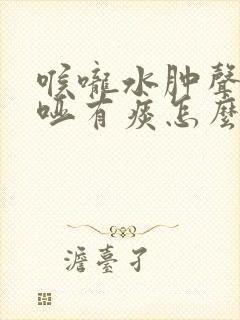 喉嚨水肿聲
哑有痰怎麼
澹臺孑